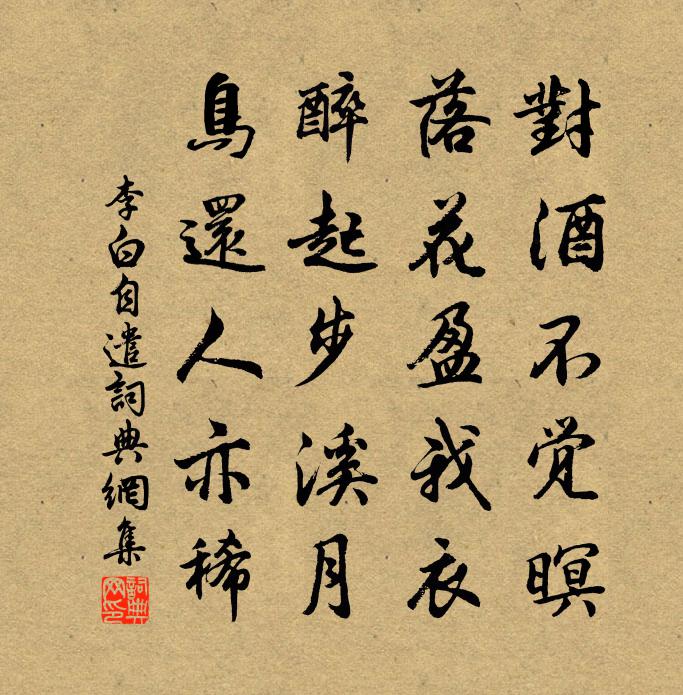 對酒不覺暝
落花盈我衣
醉起步溪月
鳥還人亦稀
李白自遣詞典網集
詞典網印